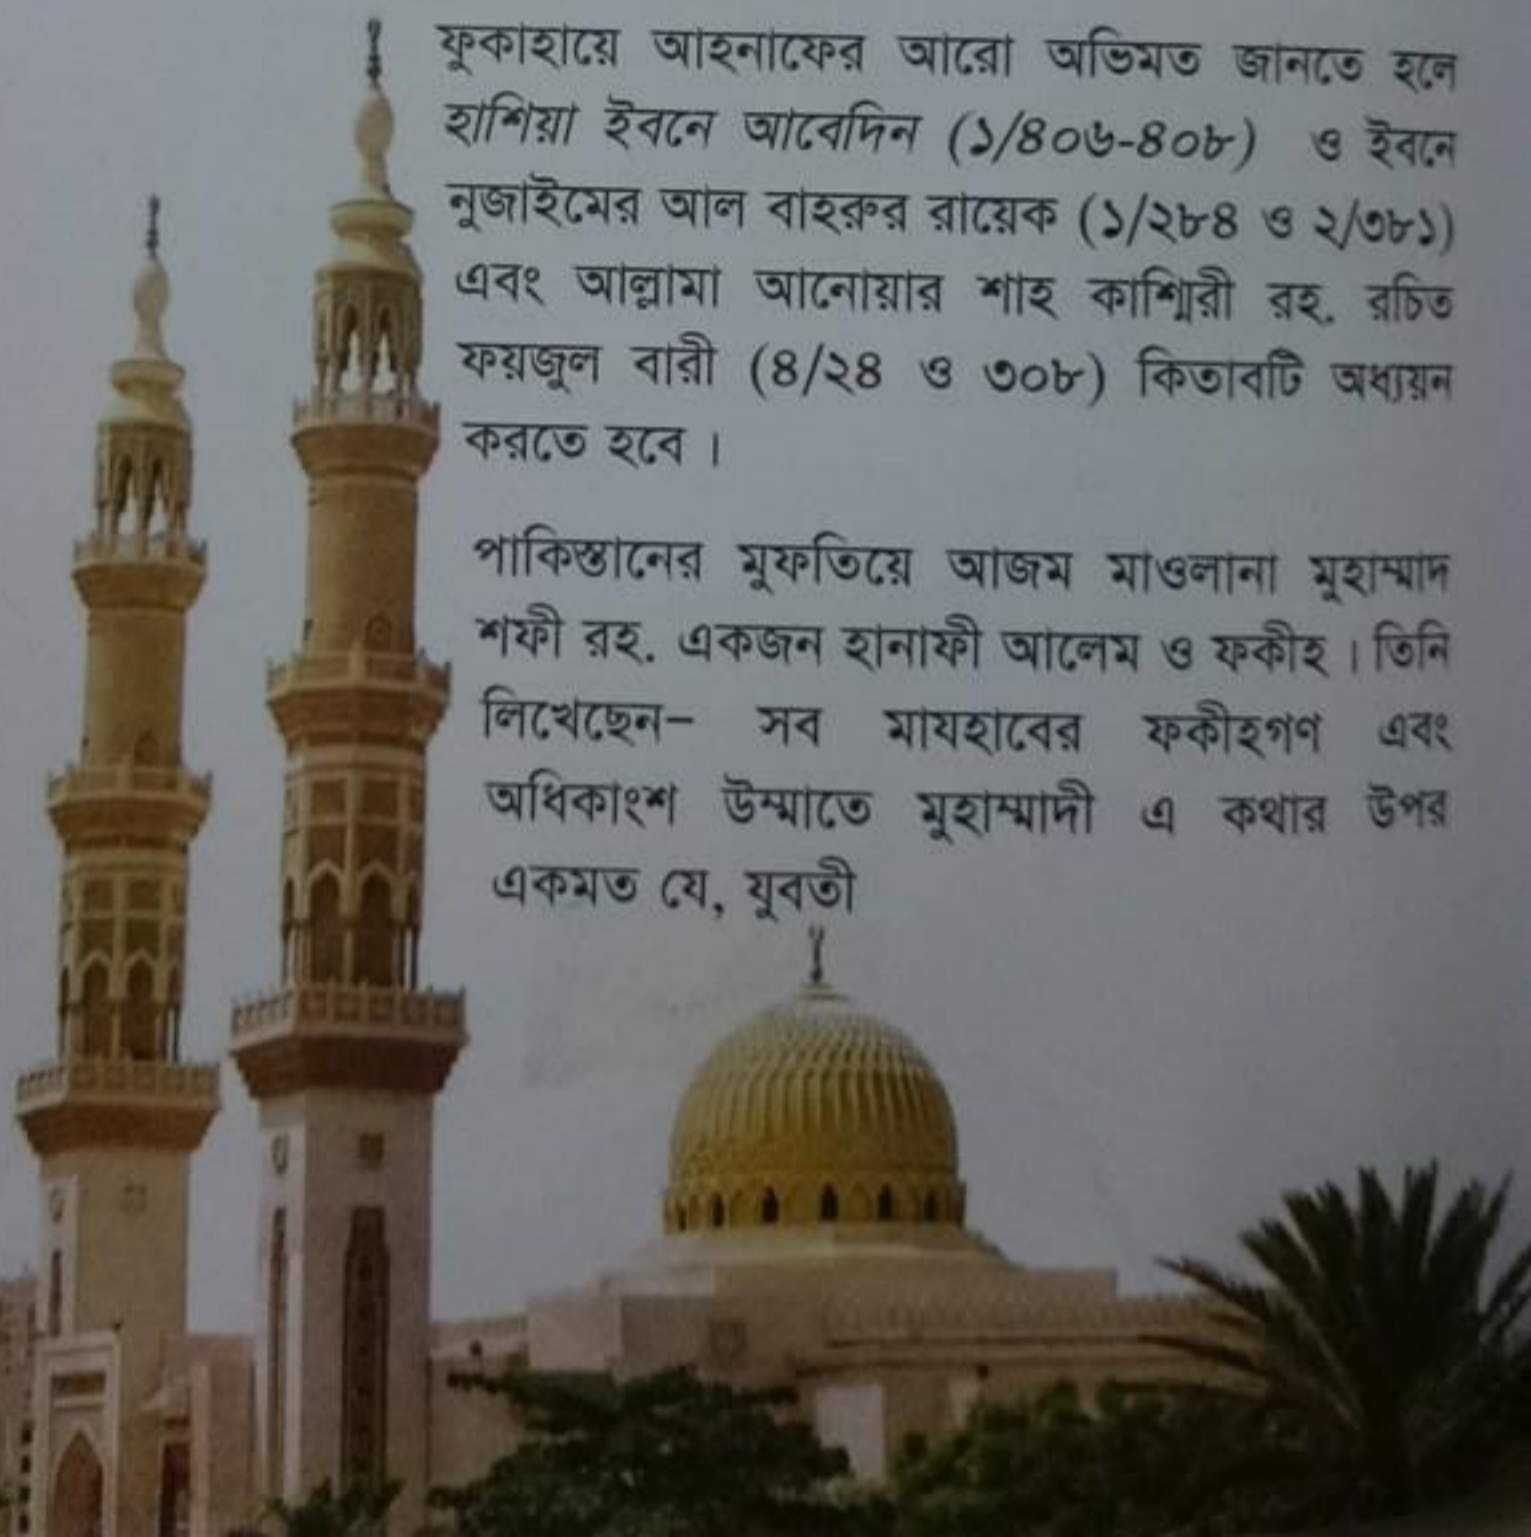 ফুকাহায়ে আহনাফের আরো অভিমত জানতে হলে
হাশিয়া ইবনে আবেদিন (১/৪০৬-৪০৮) ও ইবনে
নুজাইমের আল বাহরুর রায়েক (১/২৮৪ ও ২/৩৮১)
এবং আল্লামা আনোয়ার শাহ কাশ্মিরী রহ. রচিত
ফয়জুল বারী (৪/২৪ ও ৩০৮) কিতাবটি অধ্যয়ন
করতে হবে।
পাকিস্তানের মুফতিয়ে আজম মাওলানা মুহাম্মাদ
শফী রহ. একজন হানাফী আলেম ও ফকীহ। তিনি
লিখেছেন– সব মাযহাবের ফকীহগণ এবং
অধিকাংশ উম্মাতে মুহাম্মাদী এ কথার উপর
একমত যে, যুবতী